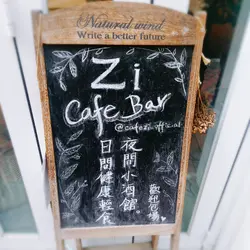 Natural wind
Write a better future
Zi
Cafe Bar
夜間小酒館
日間健康輕食
歡迎包場